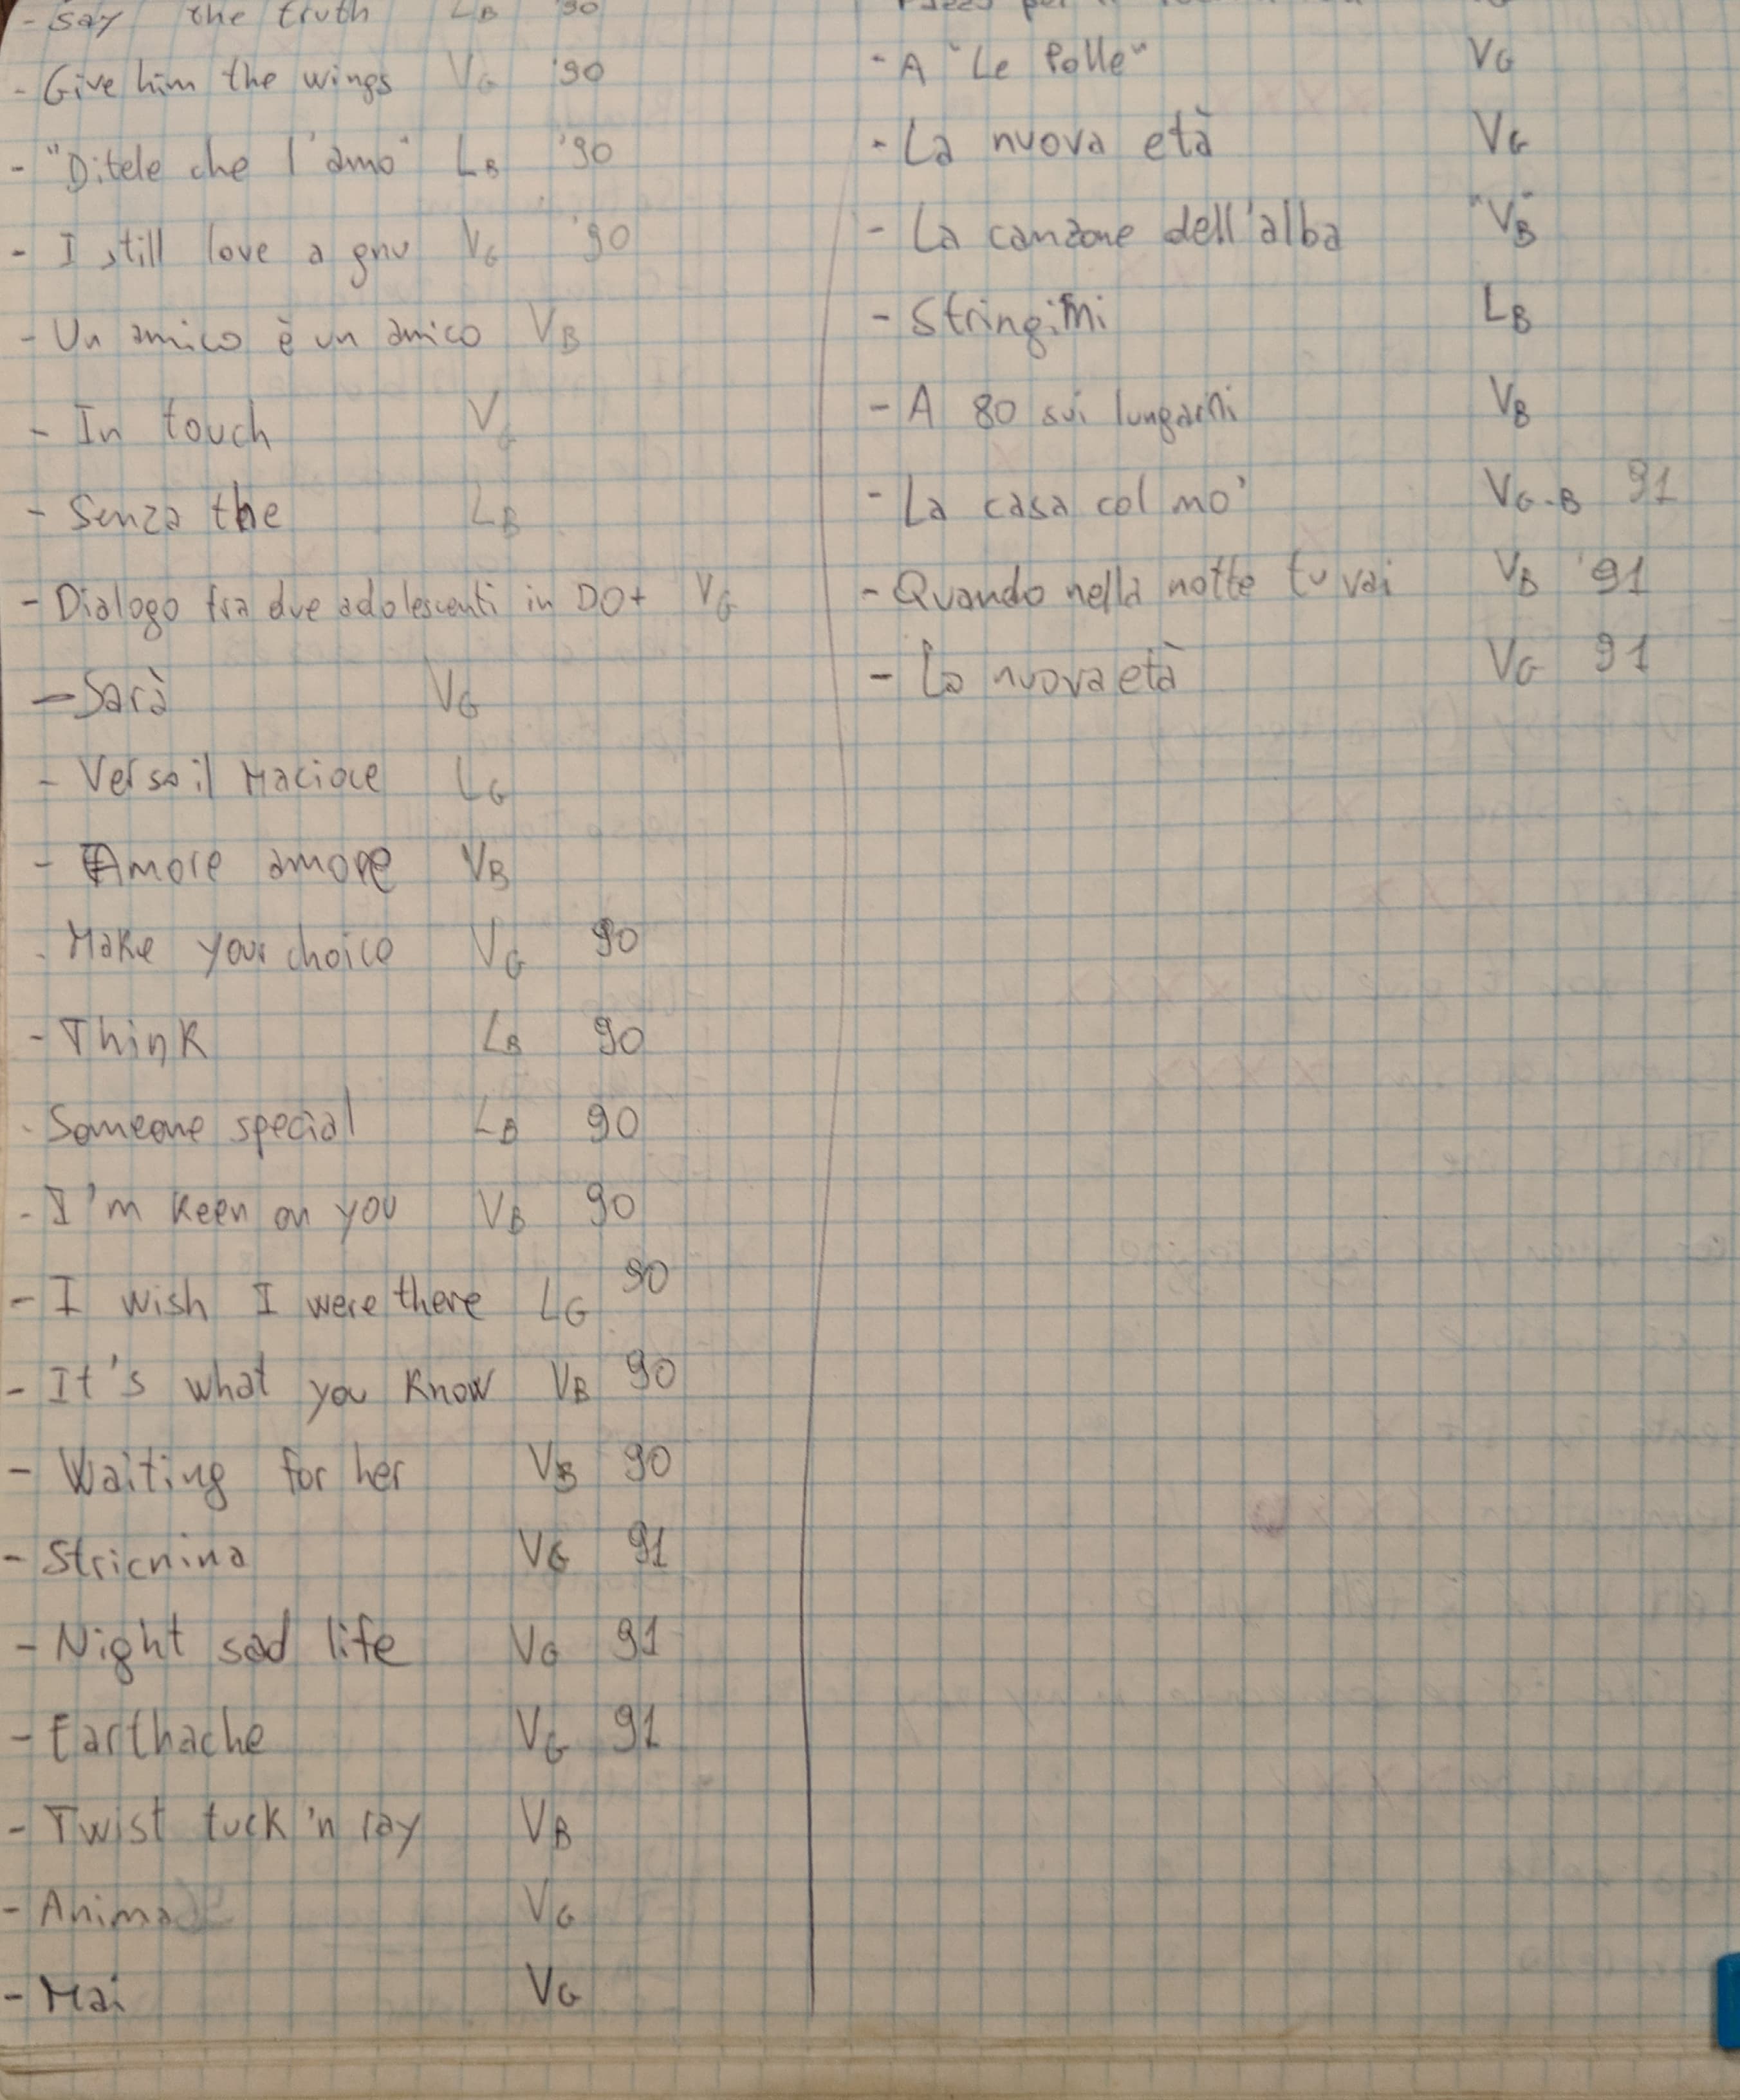 - Say the truth LB '90
- Give him the wings VG '90
- "Ditele che l'amo" LB '90
- I still love a gnu VG '90
- Un amico è un amico VB
- In touch VG
- Senza the LB
- Dialogo fra due adolescenti in DO+ VG
- Sarà VG
- Verso il Macioce LG
- Amore amore VB
- Make your choice VG 90
- Think LB 90
- Someone special LB 90
- I'm keen on you VB 90
- I wish I were there LG 90
- It's what you know VB 90
- Waiting for her VB 90
- Stricnina VG 91
- Night sad life VG 91
- Earthache VG 91
- Twist tuck 'n ray VB
- Anima VG
- Mai VG
- A "Le Polle" VG
- La nuova età VG
- La canzone dell'alba "VB"
- Stringimi LB
- A 80 sui lungarni VB
- La casa col mo' VG-B 91
- Quando nella notte tu vai VB '91
- La nuova età VG 91